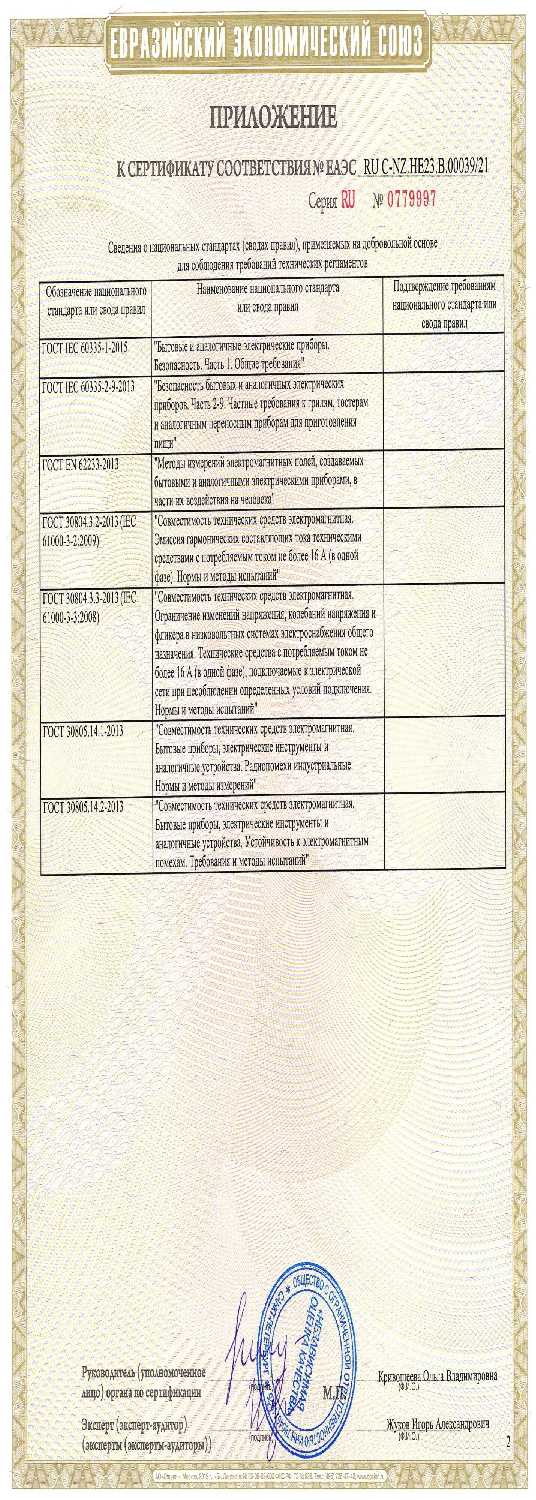 ЕВРАЗИЙСКИЙ ЭКОНОМИЧЕСКИЙ СОЮЗ
ПРИЛОЖЕНИЕ
К СЕРТИФИКАТУ СООТВЕТСТВИЯ № ЕАЭС RU C-NZ.HE23.B.00039/21
Серия RU № 0779997
Сведения о национальных стандартах (сводах правил), применяемых на добровольной основе
для соблюдения требований технических регламентов
Обозначение национального
стандарта или свода правил
Наименование национального стандарта
или свода правил
Подтверждение требованиям
национального стандарта или
свода правил
ГОСТ IEC 60335-1-2015
"Бытовые и аналогичные электрические приборы.
Безопасность. Часть 1. Общие требования"
ГОСТ IEC 60335-2-9-2013
"Безопасность бытовых и аналогичных электрических
приборов. Часть 2-9. Частные требования к грилям, тостерам
и аналогичным переносным приборам для приготовления
пищи"
ГОСТ EN 62233-2013
"Методы измерений электромагнитных полей, создаваемых
бытовыми и аналогичными электрическими приборами, в
части их воздействия на человека"
ГОСТ 30804.3.2-2013 (IEC
61000-3-2:2009)
"Совместимость технических средств электромагнитная.
Эмиссия гармонических составляющих тока техническими
средствами с потребляемым током не более 16 А (в одной
фазе). Нормы и методы испытаний"
ГОСТ 30804.3.3-2013 (IEC
61000-3-3:2008)
"Совместимость технических средств электромагнитная.
Ограничение изменений напряжения, колебаний напряжения и
фликера в низковольтных системах электроснабжения общего
назначения. Технические средства с потребляемым током не
более 16 А (в одной фазе), подключаемые к электрической
сети при несоблюдении определенных условий подключения.
Нормы и методы испытаний"
ГОСТ 30805.14.1-2013
"Совместимость технических средств электромагнитная.
Бытовые приборы, электрические инструменты и
аналогичные устройства. Радиопомехи индустриальные.
Нормы и методы измерений"
ГОСТ 30805.14.2-2013
"Совместимость технических средств электромагнитная.
Бытовые приборы, электрические инструменты и
аналогичные устройства. Устойчивость к электромагнитным
помехам. Требования и методы испытаний"
Руководитель (уполномоченное
лицо) органа по сертификации
(подпись)
М.П.
Кривошеева Ольга Владимировна
(Ф.И.О.)
ОБЩЕСТВО С ОГРАНИЧЕННОЙ ОТВЕТСТВЕННОСТЬЮ
САНКТ-ПЕТЕРБУРГ
"НЕЗАВИСИМАЯ
ОЦЕНКА КАЧЕСТВА"
Эксперт (эксперт-аудитор)
(эксперты (эксперты-аудиторы))
(подпись)
Жуков Игорь Александрович
(Ф.И.О.)
2